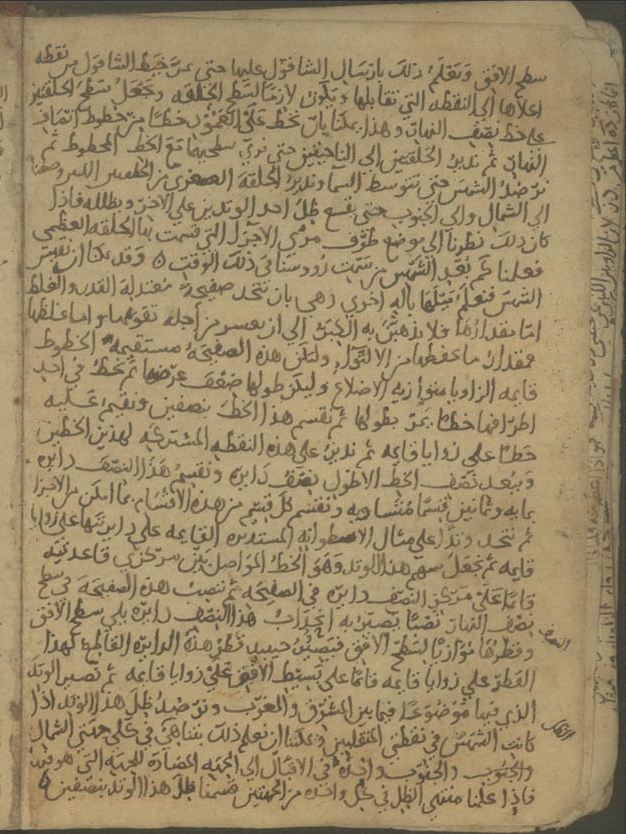 سطح الافق ونعلم ذلك بارسال الشاقول عليها حتى يمر خيط الشاقول من نقطه
اعلاها الى النقطه التي تقابلها ويكون لازما لسطح الحلقه ونجعل سطح الحلقتين
على خط نصف النهار وهذا يمكننا بان نخط على العمود خطا من خطوط انصاف
النهار ثم ندير الحلقتين الى الناحيتين حتى نرى سطحهما مع الخط المخطوط ثم
نرصد الشمس حتى تتوسط السما وندير الحلقة الصغرى من الحلقتين اللتين وصفنا
الى الشمال والى الجنوب حتى يقع ظل احد الوتدين على الاخر ويظلله فاذا
كان ذلك نظرنا الى موضع طرف مري الاجزا التي قسمت بها الحلقه العظمى
فعلمنا كم بعد الشمس من سمت رووسنا في ذلك الوقت وقد يمكنا ان نقيس
الشمس فنعلم ميلها باله اخرى وهي بان نتخذ صفيحة معتدلة القدر والغلظ
اما مقدارها فلا يذهب به الكبر الى ان يعسر من اجله تقويمها واما غلظها
فمقدار ما يحفظها من الالتوا ولتكن هذه الصفيحة مستقيمة الخطوط
قايمه الزوايا متوازيه الاضلاع وليكن طولها ضعف عرضها ثم نخط في احد
اطرافها خطا يمر بطولها ثم نقسم هذا الخط بنصفين ونقيم عليه
خطا على زوايا قايمه ثم ندير على هذه النقطه المشتركه لهذين الخطين
وببعد نصف الخط الاطول نصف دايره ونقسم هذا النصف دايره
بمايه وثمانين قسما متساويه ونقسم كل قسم من هذه الاقسام بما امكن من الاجزا
ثم نتخذ وتدا على مثال الاسطوانه المستديره القايمه على دايرتها على زوايا
قايمه ثم نجعل سهم هذا الوتد وهو الخط المواصل بين مركزي قاعدتيه
قايما على مركز النصف دايره في الصفيحه ثم ننصب هذه الصفيحة في سطح
نصف النهار نصبا يصير به احدداب هذا النصف دايره يلي سطح الافق
وقطرها موازيا لسطح الافق فيصير حينيذ قطر هذه الدايره القايم لهذا
القطر على زوايا قايمه قايما على بسيط الافق على زوايا قايمه ثم نصير الوتد
الذي فيها موضوعا فيما بين المشرق والمغرب ونرصد ظل هذا الوتد اذا
كانت الشمس في نقطتي المنقلبين ويمكننا ان نعلم ذلك بتناهي في كلي جهتي الشمال
والجنوب واخذه في الاقبال الى الجهه المضادة للجهه التي هو فيها
فاذا علمنا منتهى الظل في كل واحده من الجهتين قسمنا ظل هذا الوتد بنصفين